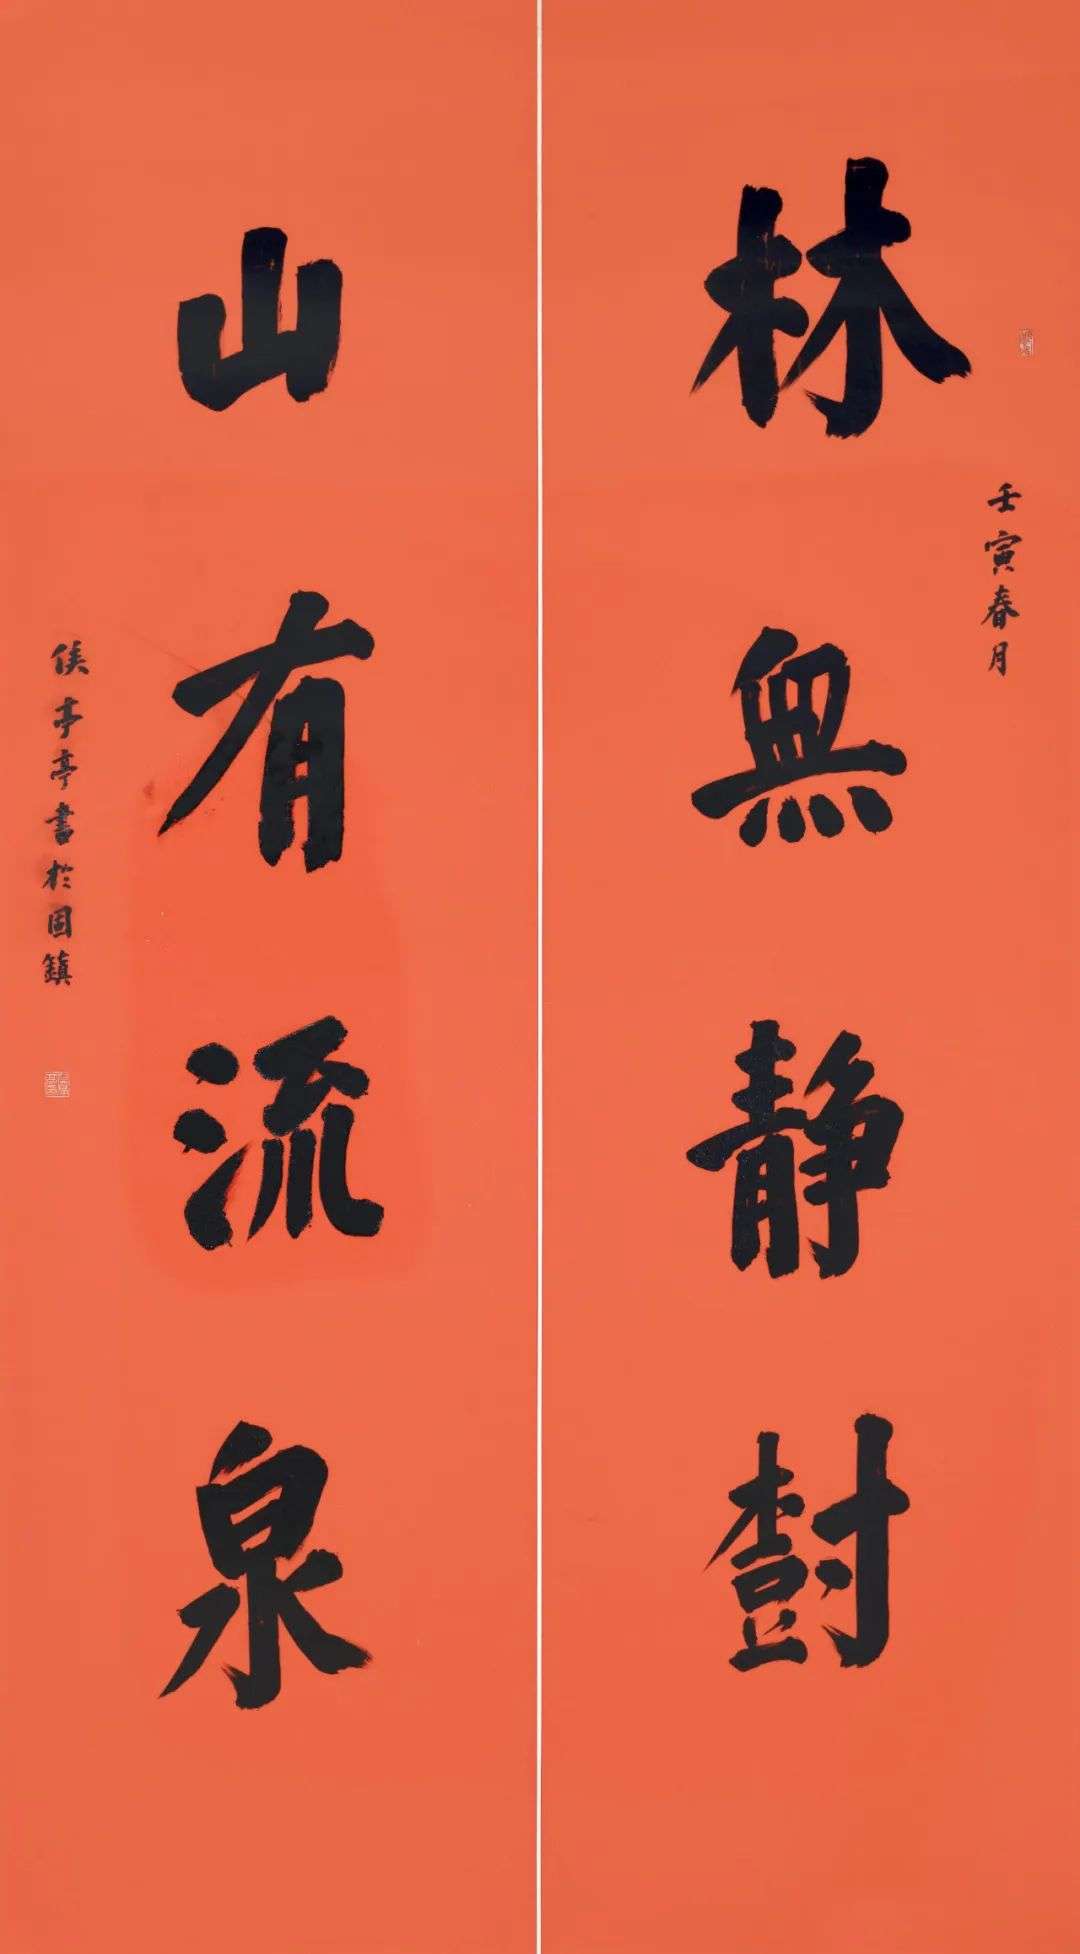 林無静樹
壬寅春月
山有流泉
侯亭亭書於固鎮